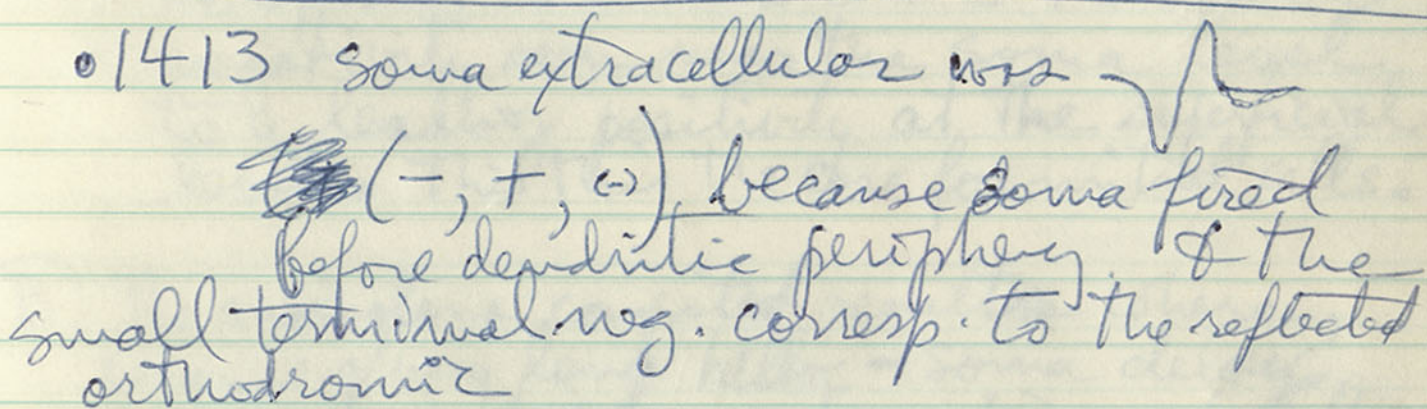 •1413 soma extracellular was
(-, +, (-)), because soma fired
before dendritic periphery. & the
small terminal neg. corresp. to the reflected
orthodromic